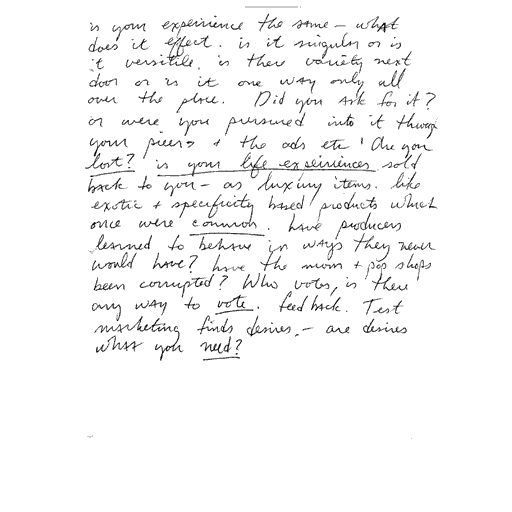 is your experience the same – what
does it effect. is it singular or is
it versitile. is there variety next
door or is it one way only all
over the place. Did you ask for it?
or were you pursured into it through
your piers + the ads etc ! Are you
lost? is your life experiences sold
back to you – as luxury items. like
exotic + specificity based products which
once were common. have producers
learned to behave in ways they never
would have? have the mom + pop shops
been corrupted? Who votes, is there
any way to vote. feed back. Test
marketing finds desires, – are desires
what you need?